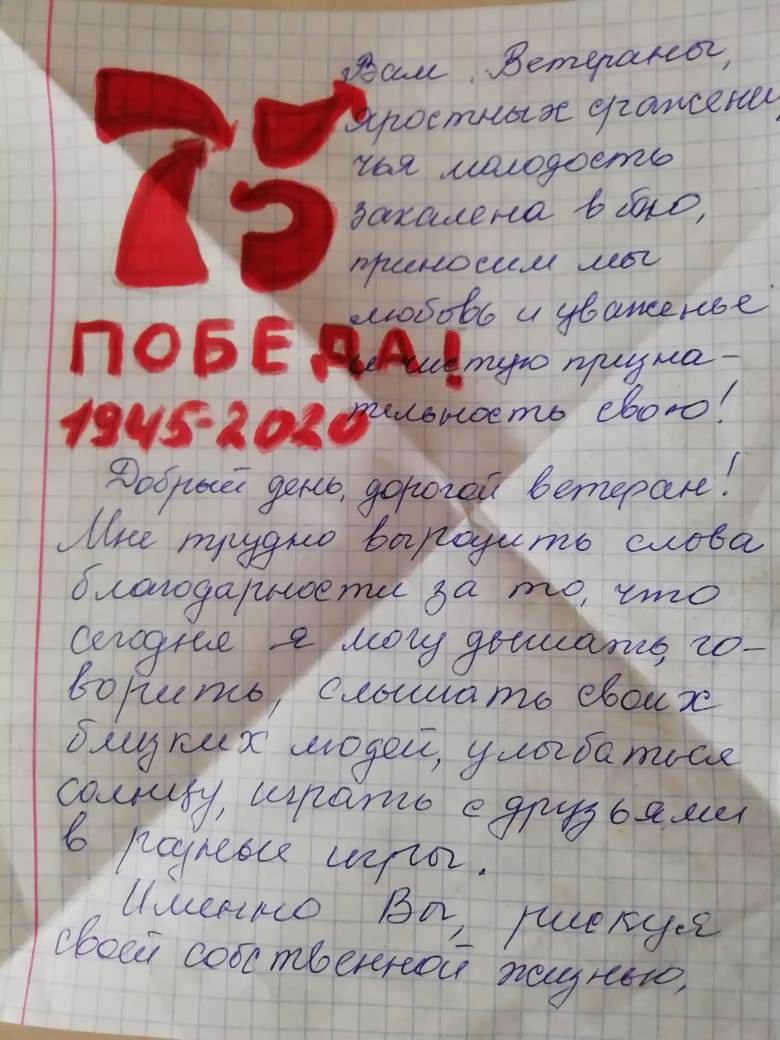 75
ПОБЕДА!
1945-2020
Вам, Ветераны,
яростных сражени
чья молодость
закалена в бою,
приносим мы
любовь и уваженье
и чистую призна-
тельность свою!
Добрый день, дорогой ветеран!
Мне трудно выразить слова
благодарности за то, что
сегодня я могу дышать, го-
ворить, слышать своих
близких людей, улыбаться
солнцу, играть с друзьями
в разные игры.
Именно Вы, рискуя
своей собственной жизнью,